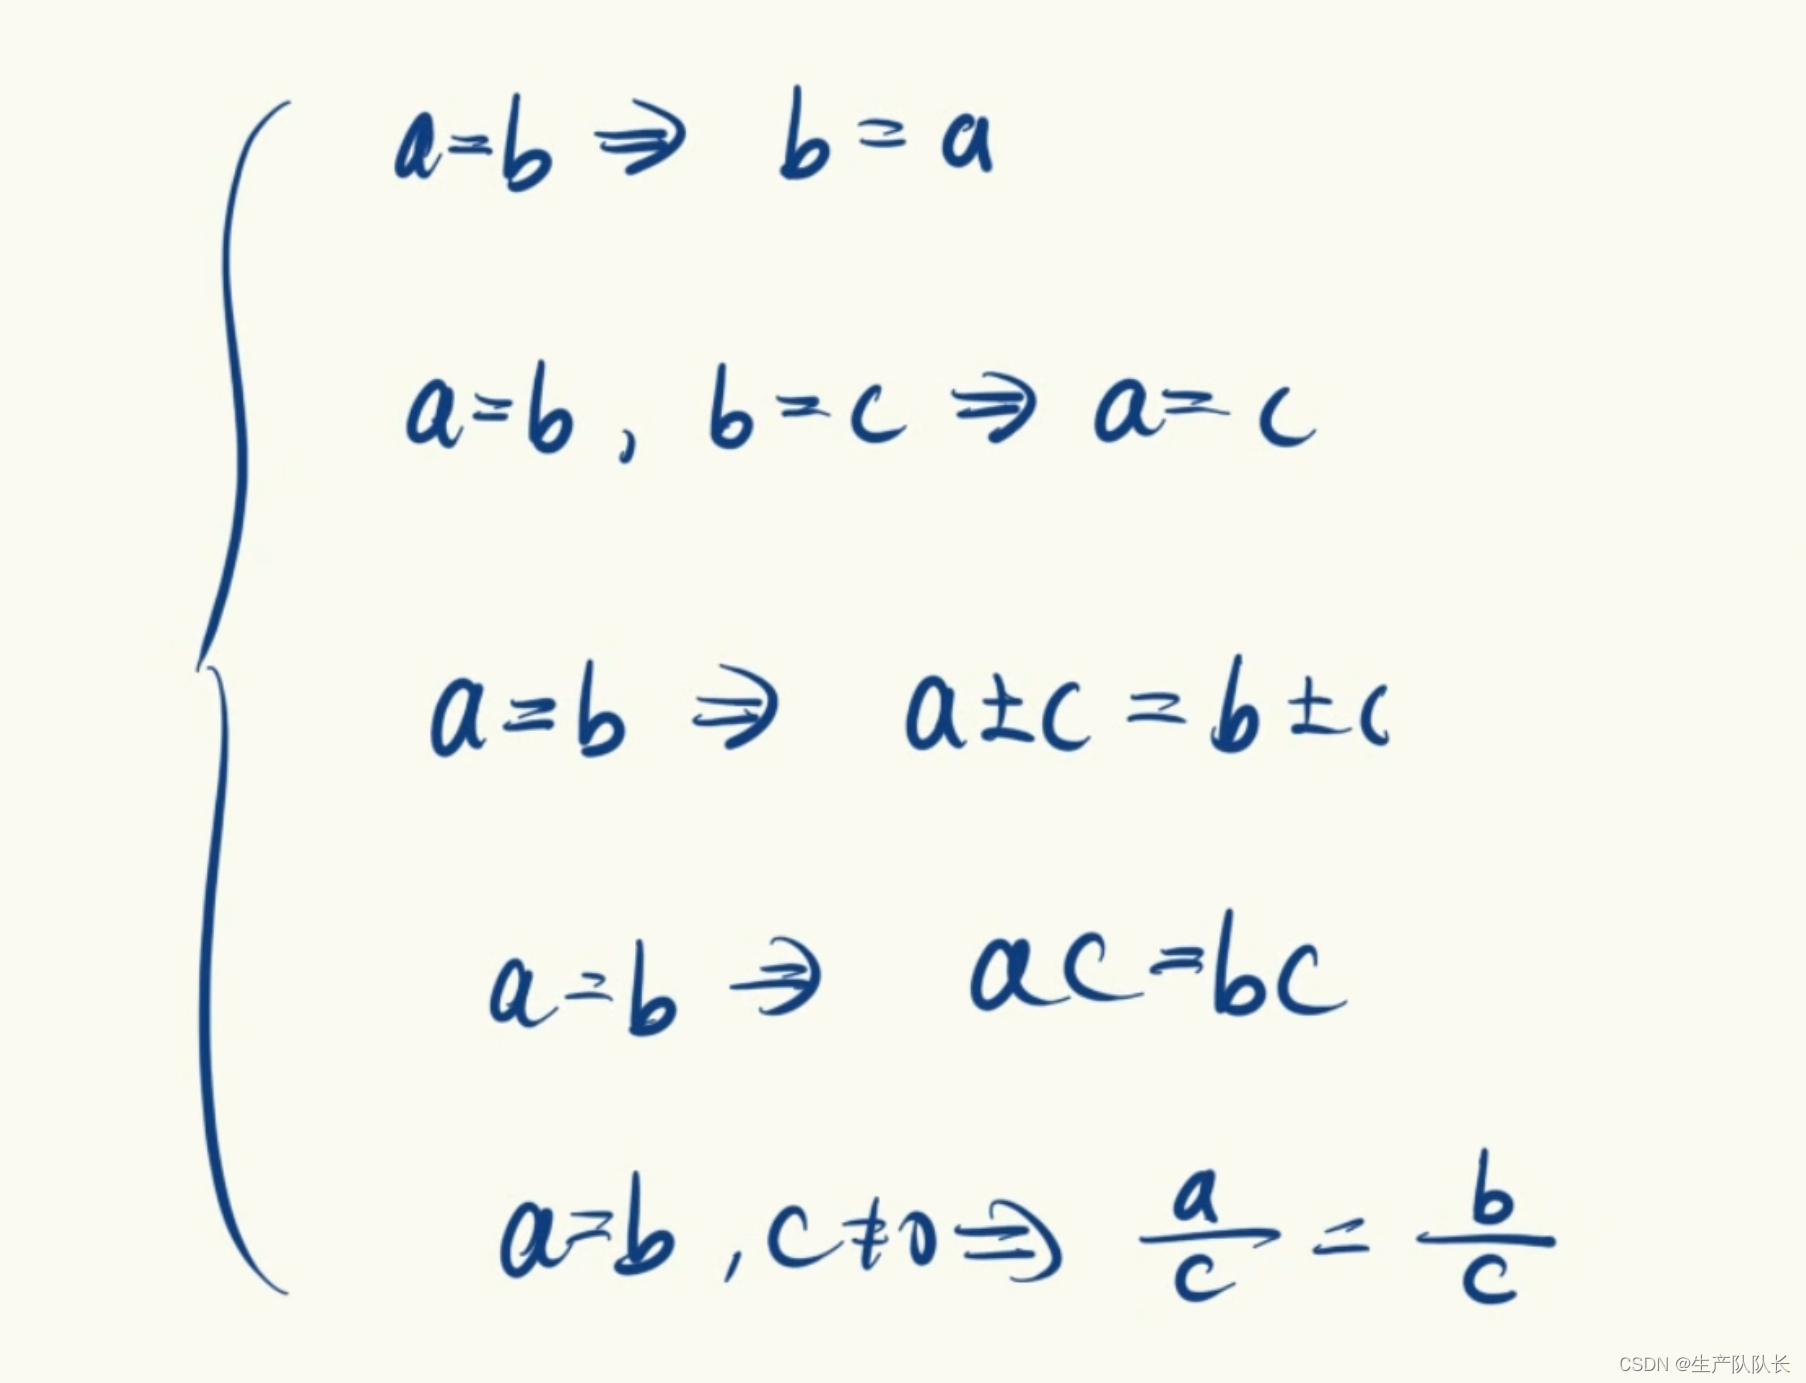 a=b ⇒ b=a
a=b, b=c ⇒ a=c
a=b ⇒ a±c=b±c
a=b ⇒ ac=bc
a=b, c≠0 ⇒ a/c = b/c
CSDN @生产队队长